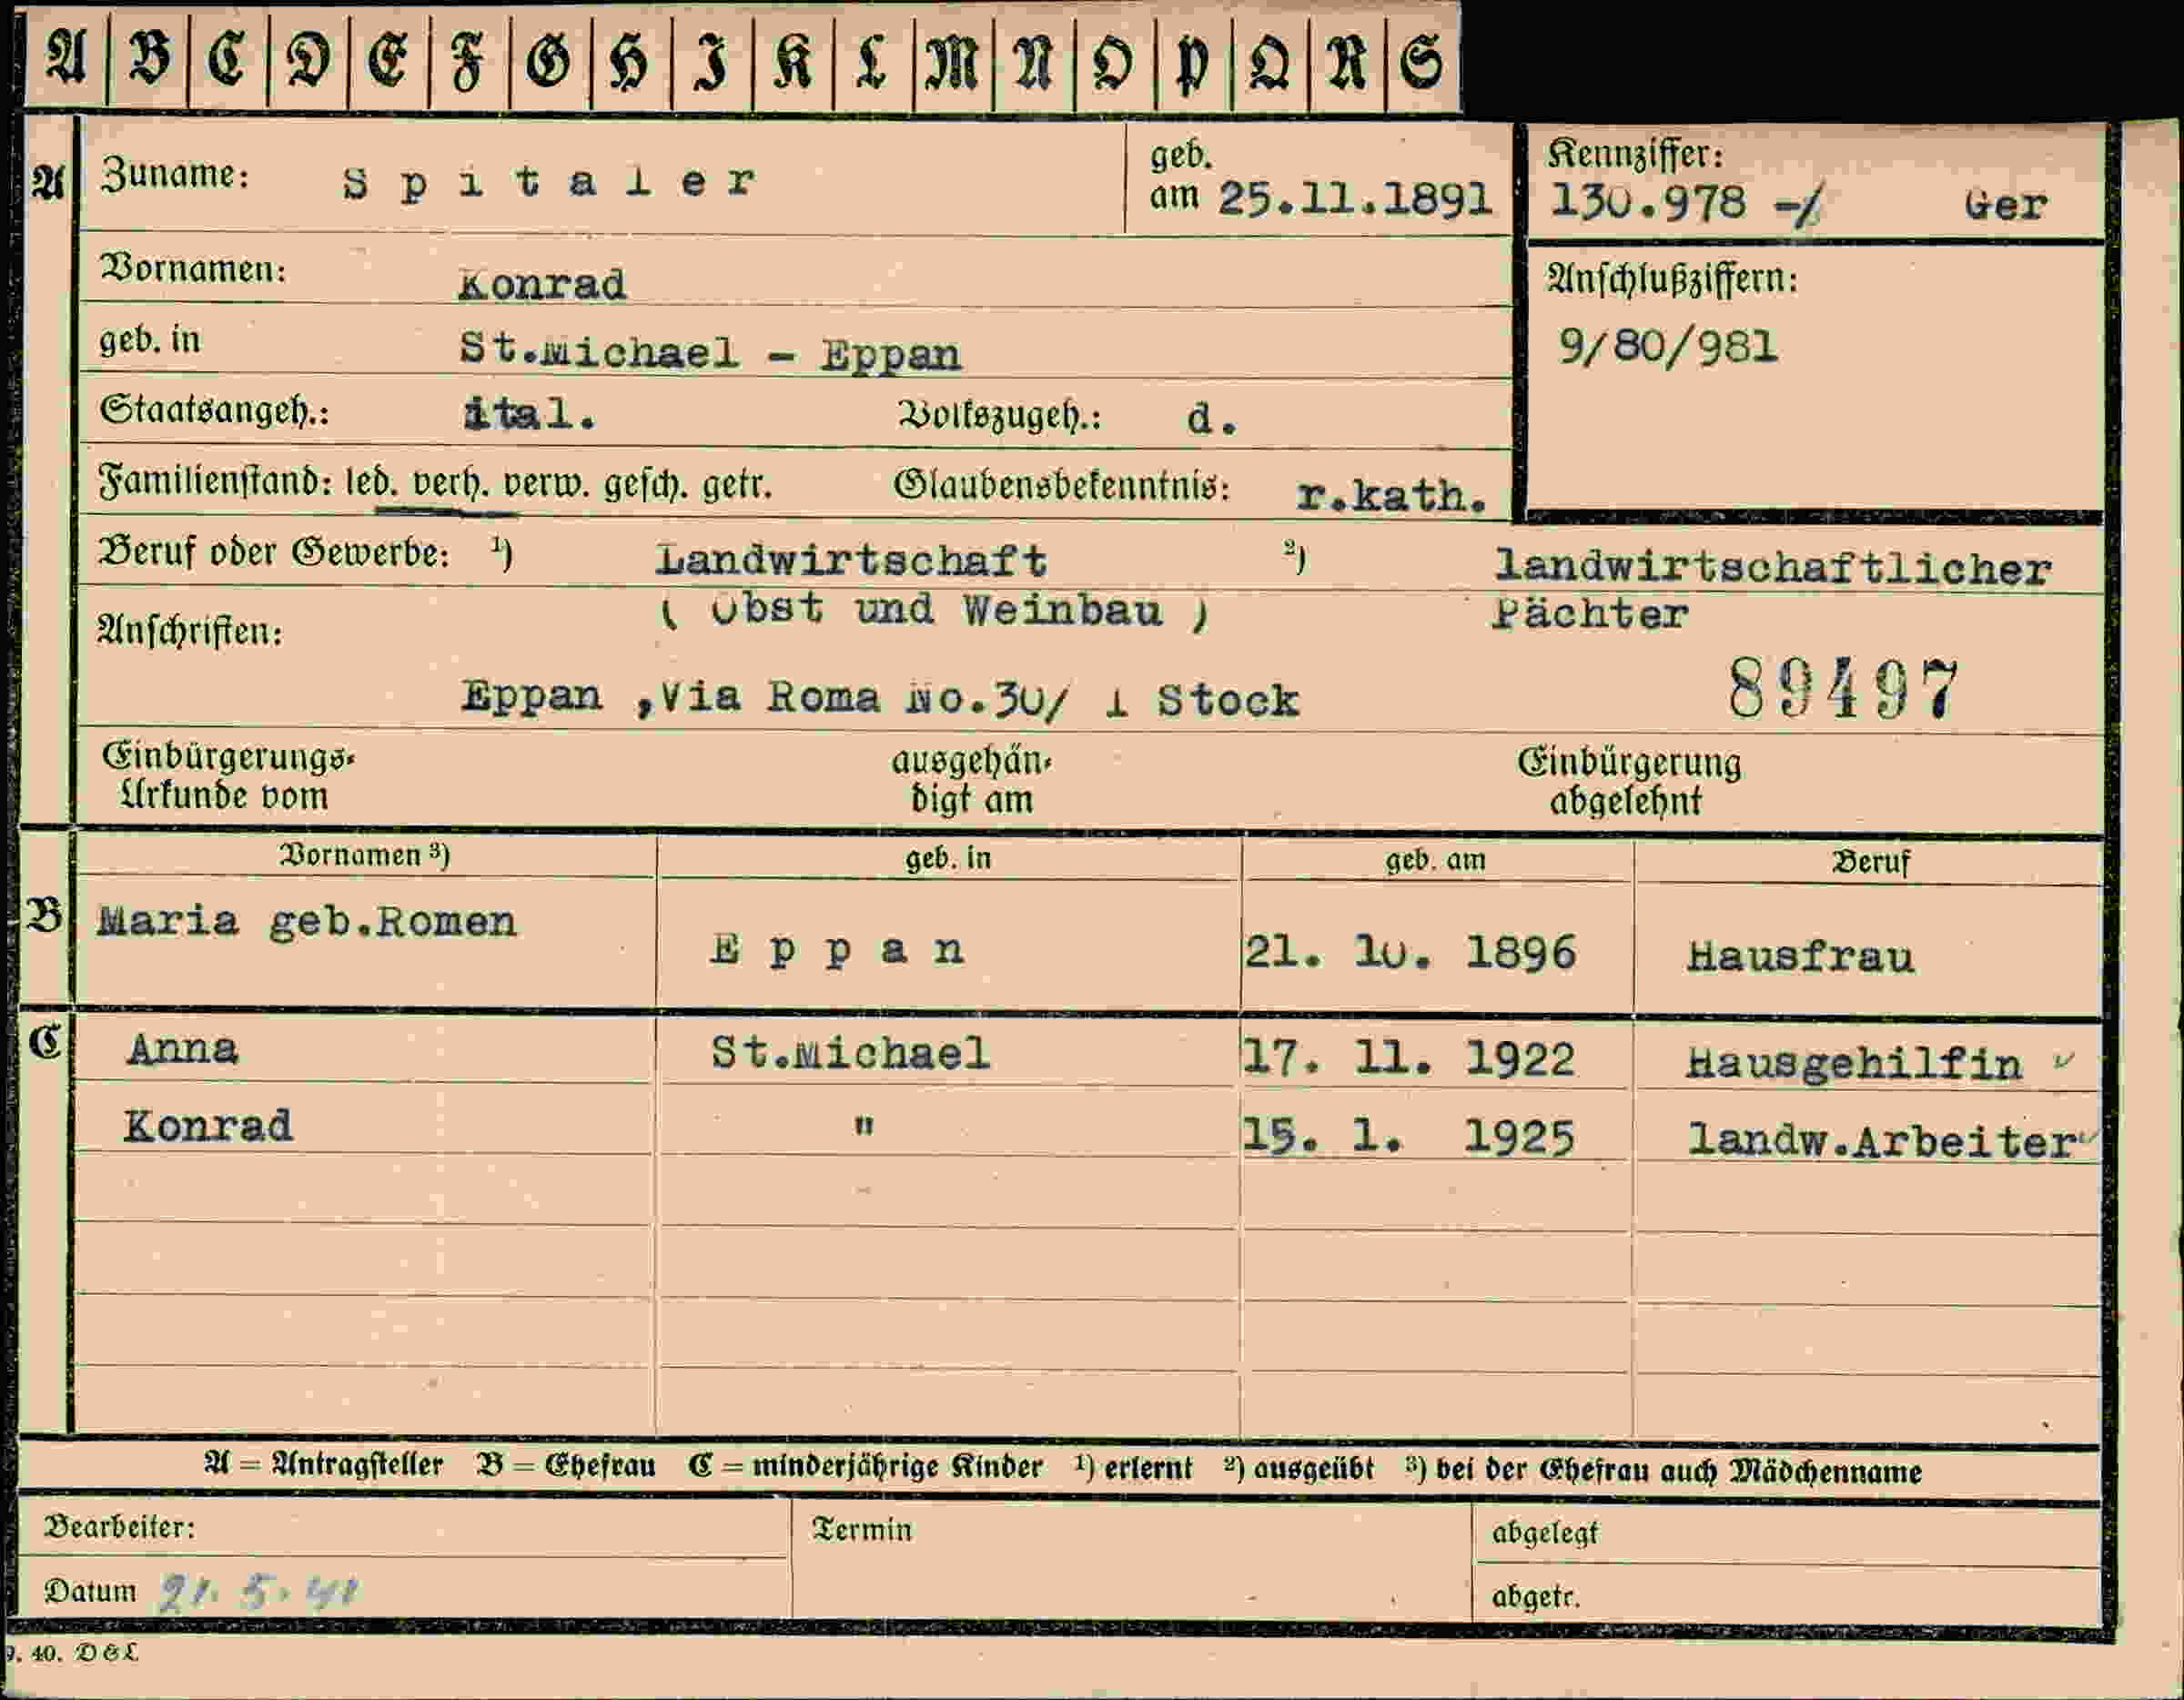 A B C D E F G H I K L M N O P Q R S
A Zuname: Spitaler geb. am 25.11.1891
Kennziffer: 130.978 -/ Ger
Vornamen: Konrad
Anschlußziffern:
geb. in St.Michael - Eppan
9/80/981
Staatsangeh.: ital. Volkszugeh.: d.
Familienstand: led. verh. verw. gesch. getr. Glaubensbekenntnis: r.kath.
Beruf oder Gewerbe: ¹) Landwirtschaft ²) landwirtschaftlicher
( Obst und Weinbau ) Pächter
Anschriften:
Eppan ,Via Roma No.30/ 1 Stock 89497
Einbürgerungs- ausgehän- Einbürgerung
Urkunde vom digt am abgelehnt
Vornamen ³) geb. in geb. am Beruf
B Maria geb.Romen Eppan 21. 10. 1896 Hausfrau
C Anna St.Michael 17. 11. 1922 Hausgehilfin ✓
Konrad " 15. 1. 1925 landw.Arbeiter ✓
A = Antragsteller B = Ehefrau C = minderjährige Kinder ¹) erlernt ²) ausgeübt ³) bei der Ehefrau auch Mädchenname
Bearbeiter: Termin abgelegt
Datum 21. 5. 41 abgetr.
9. 40. D & L